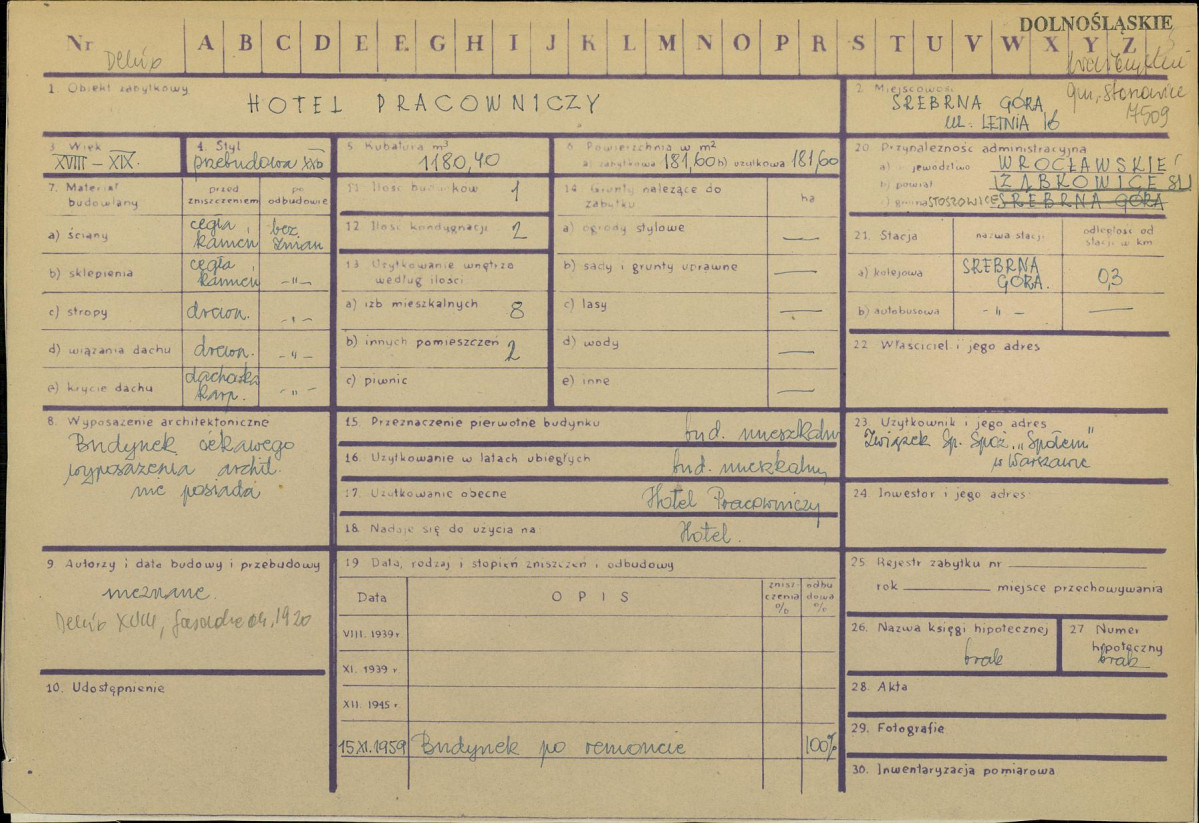 DOLNOŚLĄSKIE
Nr A B C D E F G H I J K L M N O P R S T U V W X Y Z
gm. Stoszowice
7509
1. Obiekt zabytkowy
HOTEL PRACOWNICZY
2. Miejscowość
SREBRNA GÓRA
UL. LETNIA 16
3. Wiek
XVIII – XIX.
4. Styl
przebudowa XXb
5. Kubatura m³
1180,40
6. Powierzchnia w m²
a) zabytkowa 181,60 b) użytkowa 181,60
20. Przynależność administracyjna
a) województwo WROCŁAWSKIE
b) powiat ZĄBKOWICE ŚL.
c) gmina STOSZOWICE SREBRNA GÓRA
7. Materiał budowlany
przed zniszczeniem
po odbudowie
a) ściany cegła, kamień bez zmian
b) sklepienia cegła, kamień - " -
c) stropy drewn. - " -
d) wiązania dachu drewn. - " -
e) krycie dachu dachówka karp. - " -
11. Ilość budynków 1
12. Ilość kondygnacji 2
13. Użytkowanie wnętrza
według ilości
a) izb mieszkalnych 8
b) innych pomieszczeń 2
c) piwnic
14. Grunty należące do
zabytku ha
a) ogrody stylowe —
b) sady i grunty uprawne —
c) lasy —
d) wody —
e) inne —
21. Stacja
nazwa stacji
odległość od
stacji w km
a) kolejowa SREBRNA GÓRA. 0,3
b) autobusowa - " - —
22. Właściciel i jego adres
8. Wyposażenie architektoniczne
Budynek ciekawego
wyposażenia archit.
nie posiada
15. Przeznaczenie pierwotne budynku
bud. mieszkalny
16. Użytkowanie w latach ubiegłych
bud. mieszkalny
17. Użytkowanie obecne
Hotel Pracowniczy
18. Nadaje się do użycia na
Hotel.
23. Użytkownik i jego adres
Związek Sp. Spoż. „Społem"
w Warszawie
24. Inwestor i jego adres
9. Autorzy i data budowy i przebudowy
nieznane.
XVIII, 1920
10. Udostępnienie
19. Data, rodzaj i stopień zniszczeń i odbudowy
Data
OPIS
zniszczenia %
odbudowa %
VIII. 1939 r
XI. 1939 r.
XII. 1945 r.
15.XI.1959 Budynek po remoncie 100%
25. Rejestr zabytku nr
rok miejsce przechowywania
26. Nazwa księgi hipotecznej
brak
27. Numer
hipoteczny
brak
28. Akta
29. Fotografie
30. Inwentaryzacja pomiarowa